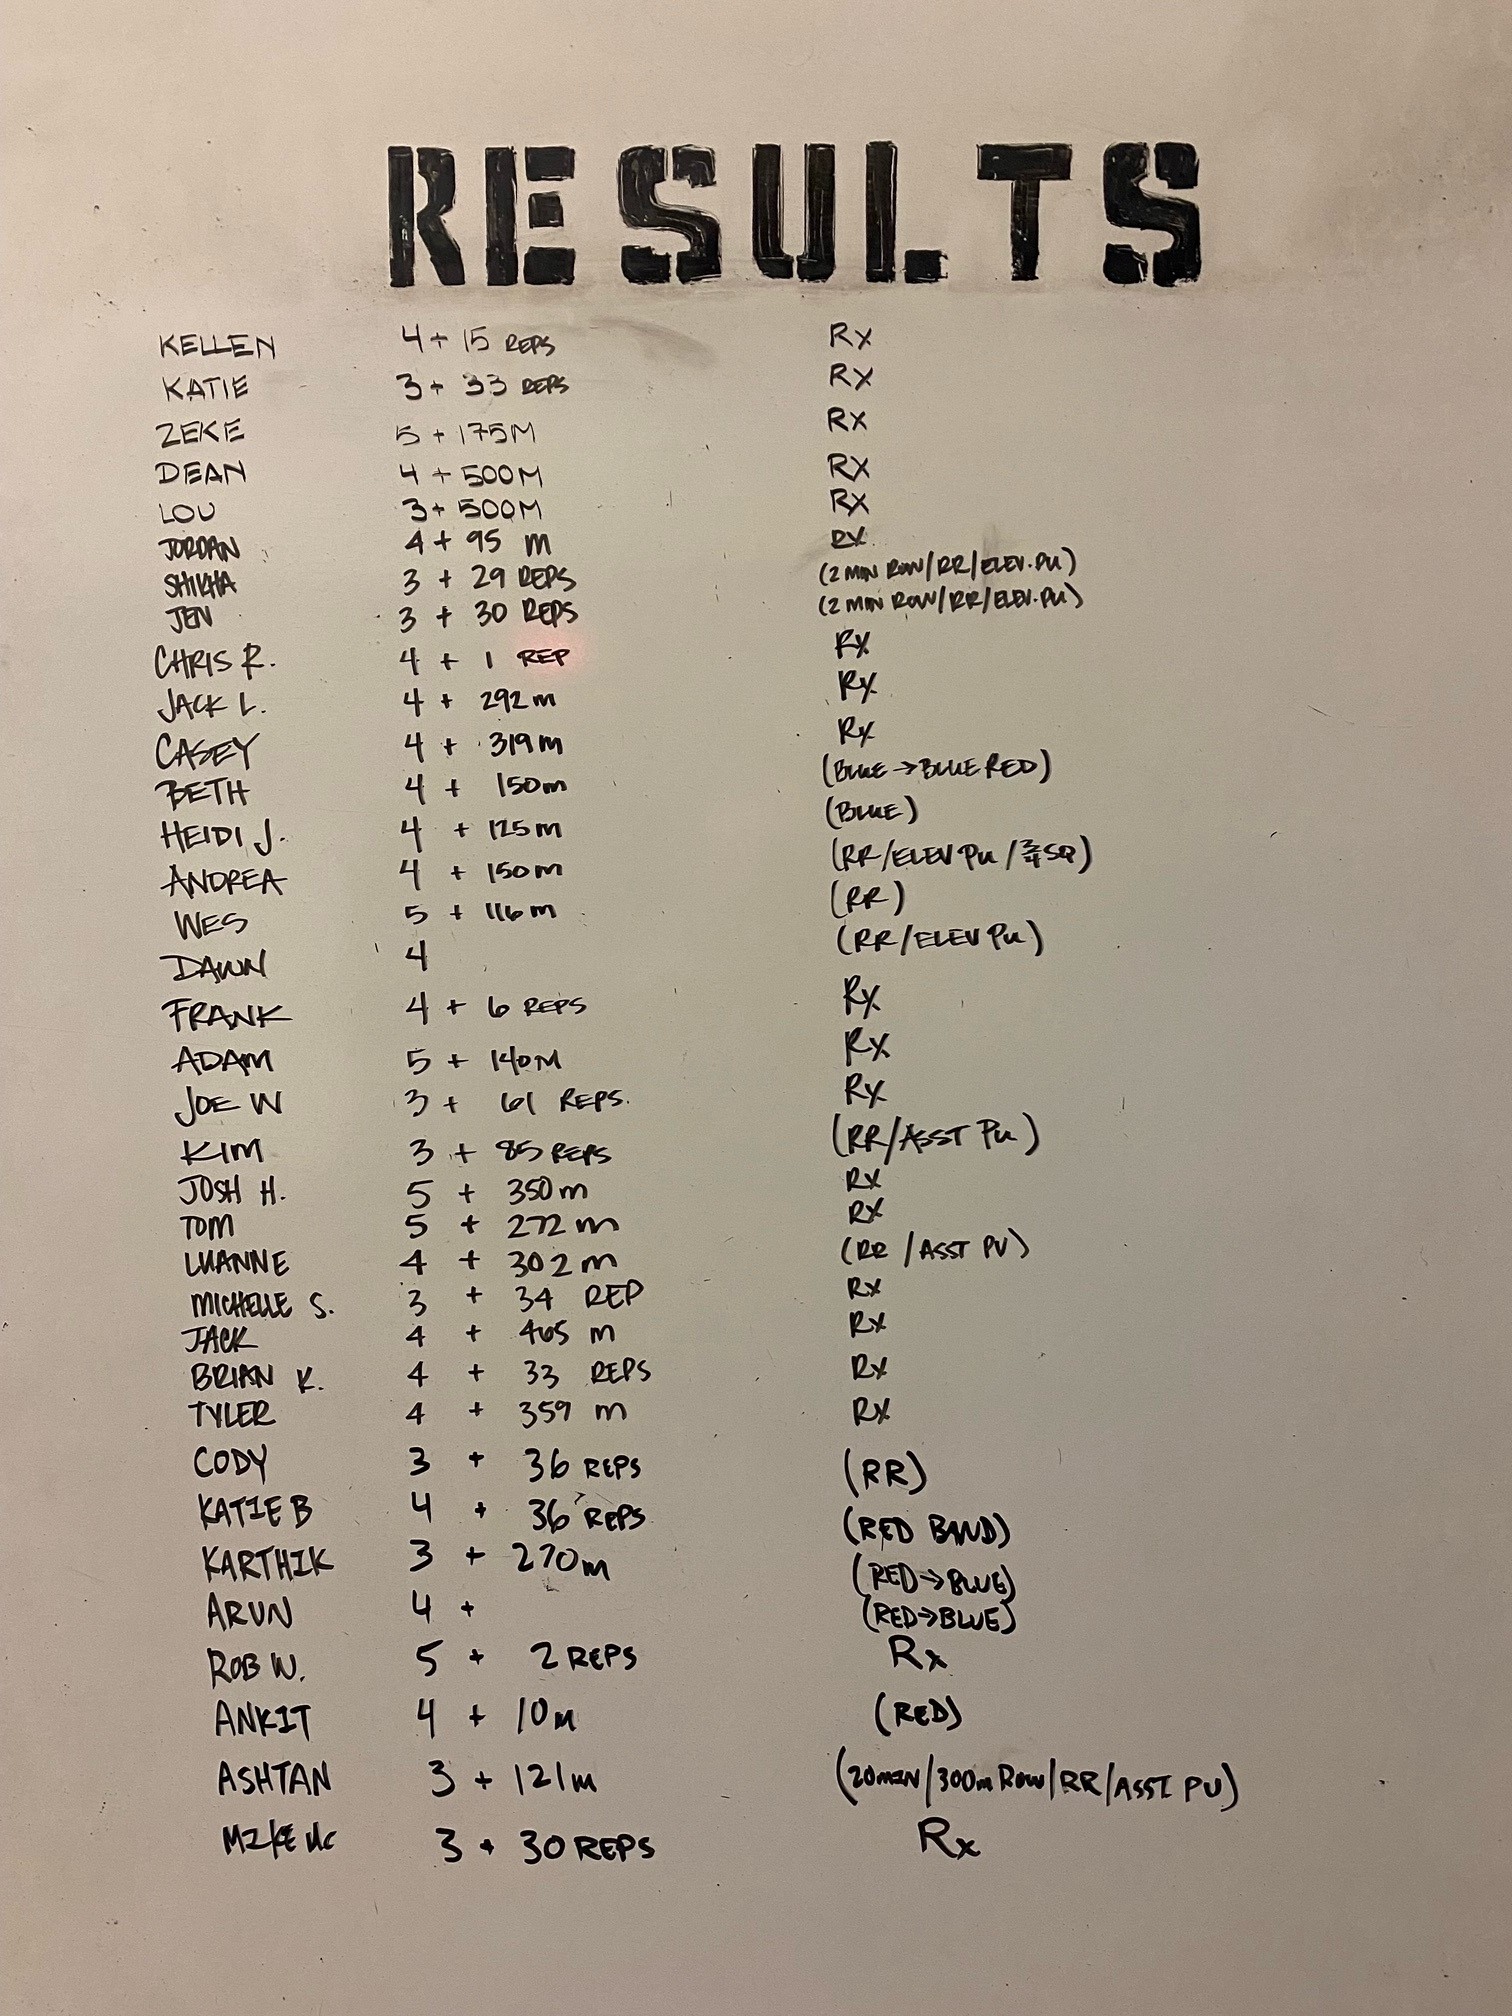 RESULTS
KELLEN 4 + 15 REPS Rx
KATIE 3 + 33 REPS Rx
ZEKE 5 + 175M Rx
DEAN 4 + 500M Rx
LOU 3 + 500M Rx
JORDAN 4 + 95 m Rx
SHIKHA 3 + 29 REPS (2 MIN ROW/RR/ELEV. PU)
JEN 3 + 30 REPS (2 MIN ROW/RR/ELEV. PU)
CHRIS R. 4 + 1 REP Rx
JACK L. 4 + 292m Rx
CASEY 4 + 319m Rx
BETH 4 + 150m (BLUE → BLUE RED)
HEIDI J. 4 + 125m (BLUE)
ANDREA 4 + 150m (RR/ELEV PU / 3/4 SQ)
WES 5 + 116m (RR)
DAWN 4 (RR/ELEV PU)
FRANK 4 + 6 REPS Rx
ADAM 5 + 140M Rx
JOE W 3 + 61 REPS. Rx
KIM 3 + 85 REPS (RR/ASST PU)
JOSH H. 5 + 350m Rx
TOM 5 + 272 m Rx
LUANNE 4 + 302 m (RR / ASST PU)
MICHELLE S. 3 + 34 REP Rx
JACK 4 + 465 m Rx
BRIAN K. 4 + 33 REPS Rx
TYLER 4 + 359 m Rx
CODY 3 + 36 REPS (RR)
KATIE B 4 + 36 REPS (RED BAND)
KARTHIK 3 + 270m (RED→BLUE)
ARUN 4 + (RED→BLUE)
ROB W. 5 + 2 REPS Rx
ANKIT 4 + 10m (RED)
ASHTAN 3 + 121m (20MIN/300m ROW/RR/ASST PU)
MIKE Mc 3 + 30 REPS Rx